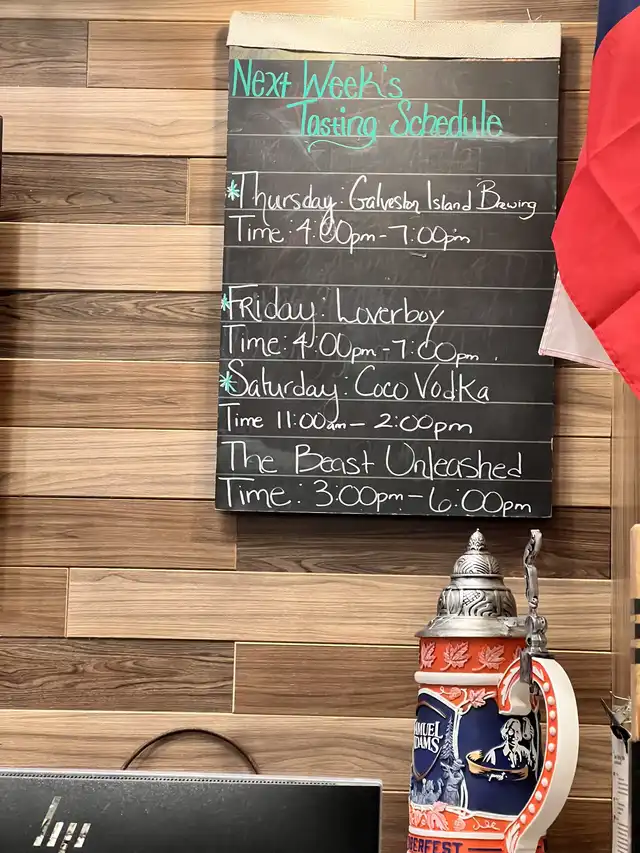 Next Week's
Tasting Schedule
*Thursday: Galveston Island Brewing
Time: 4:00pm - 7:00pm
*Friday: Loverboy
Time: 4:00pm - 7:00pm.
*Saturday: Coco Vodka
Time 11:00am - 2:00pm
The Beast Unleashed
Time: 3:00pm - 6:00pm
AMUEL
DAMS
ERFEST
hp